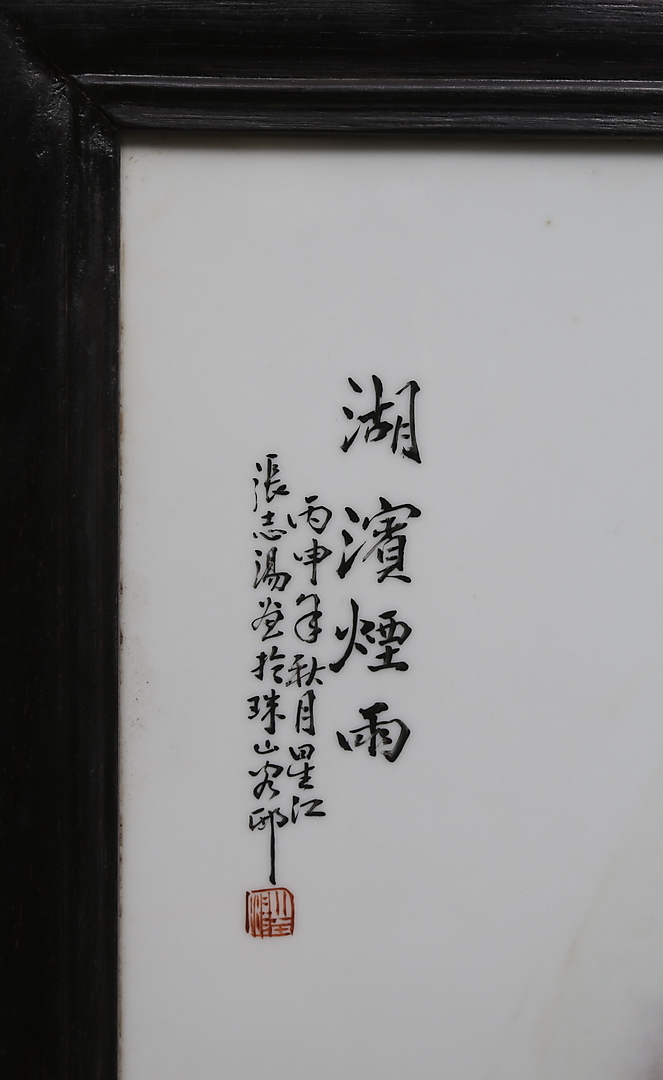 湖濱煙雨
丙申年秋月星江
張志湯並於珠山客邸